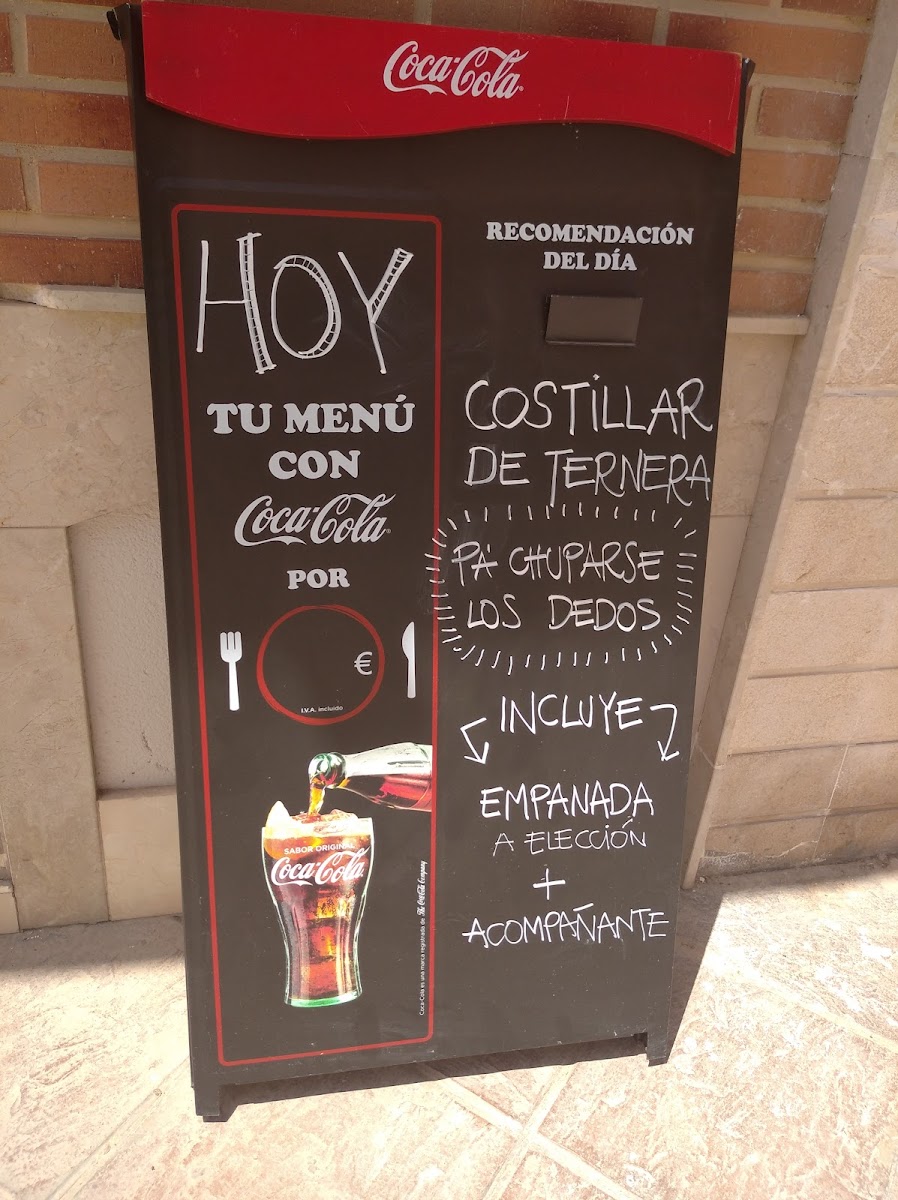 Coca-Cola
HOY
TU MENÚ
CON
Coca-Cola
POR
€
I.V.A. incluido
SABOR ORIGINAL
Coca-Cola
Coca-Cola es una marca registrada de The Coca-Cola Company
RECOMENDACIÓN
DEL DÍA
COSTILLAR
DE TERNERA
PA' CHUPARSE
LOS DEDOS
INCLUYE
EMPANADA
A ELECCIÓN
+
ACOMPAÑANTE